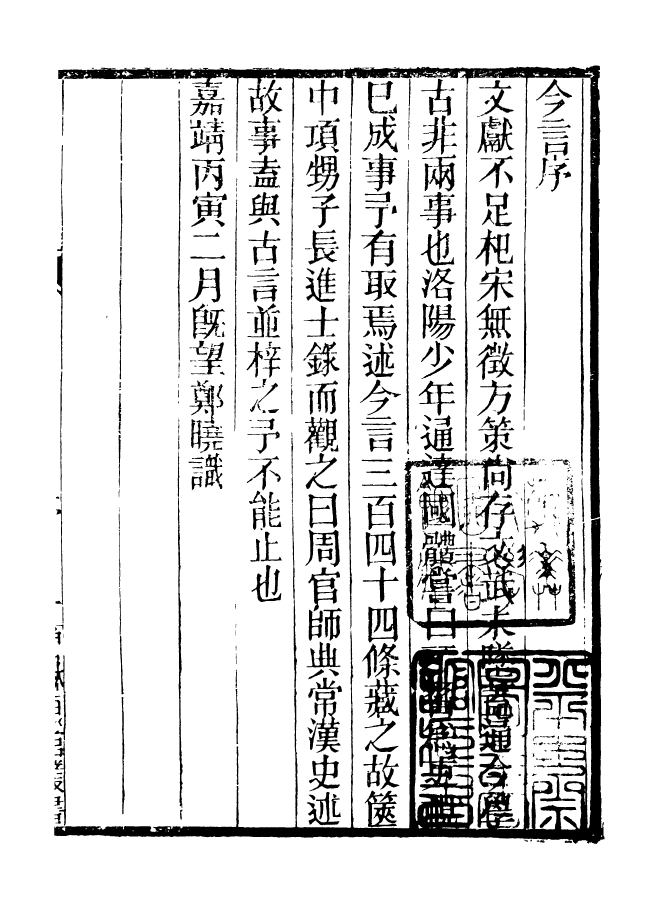 今言序
文獻不足杞宋無徵方策尚存文武未墜葢通今學
古非兩事也洛陽少年通達國體嘗曰為吏
已成事予有取焉述今言三百四十四條藏之故篋
中項甥子長進士錄而觀之曰周官師典常漢史述
故事葢與古言並梓之予不能止也
嘉靖丙寅二月旣望鄭曉識